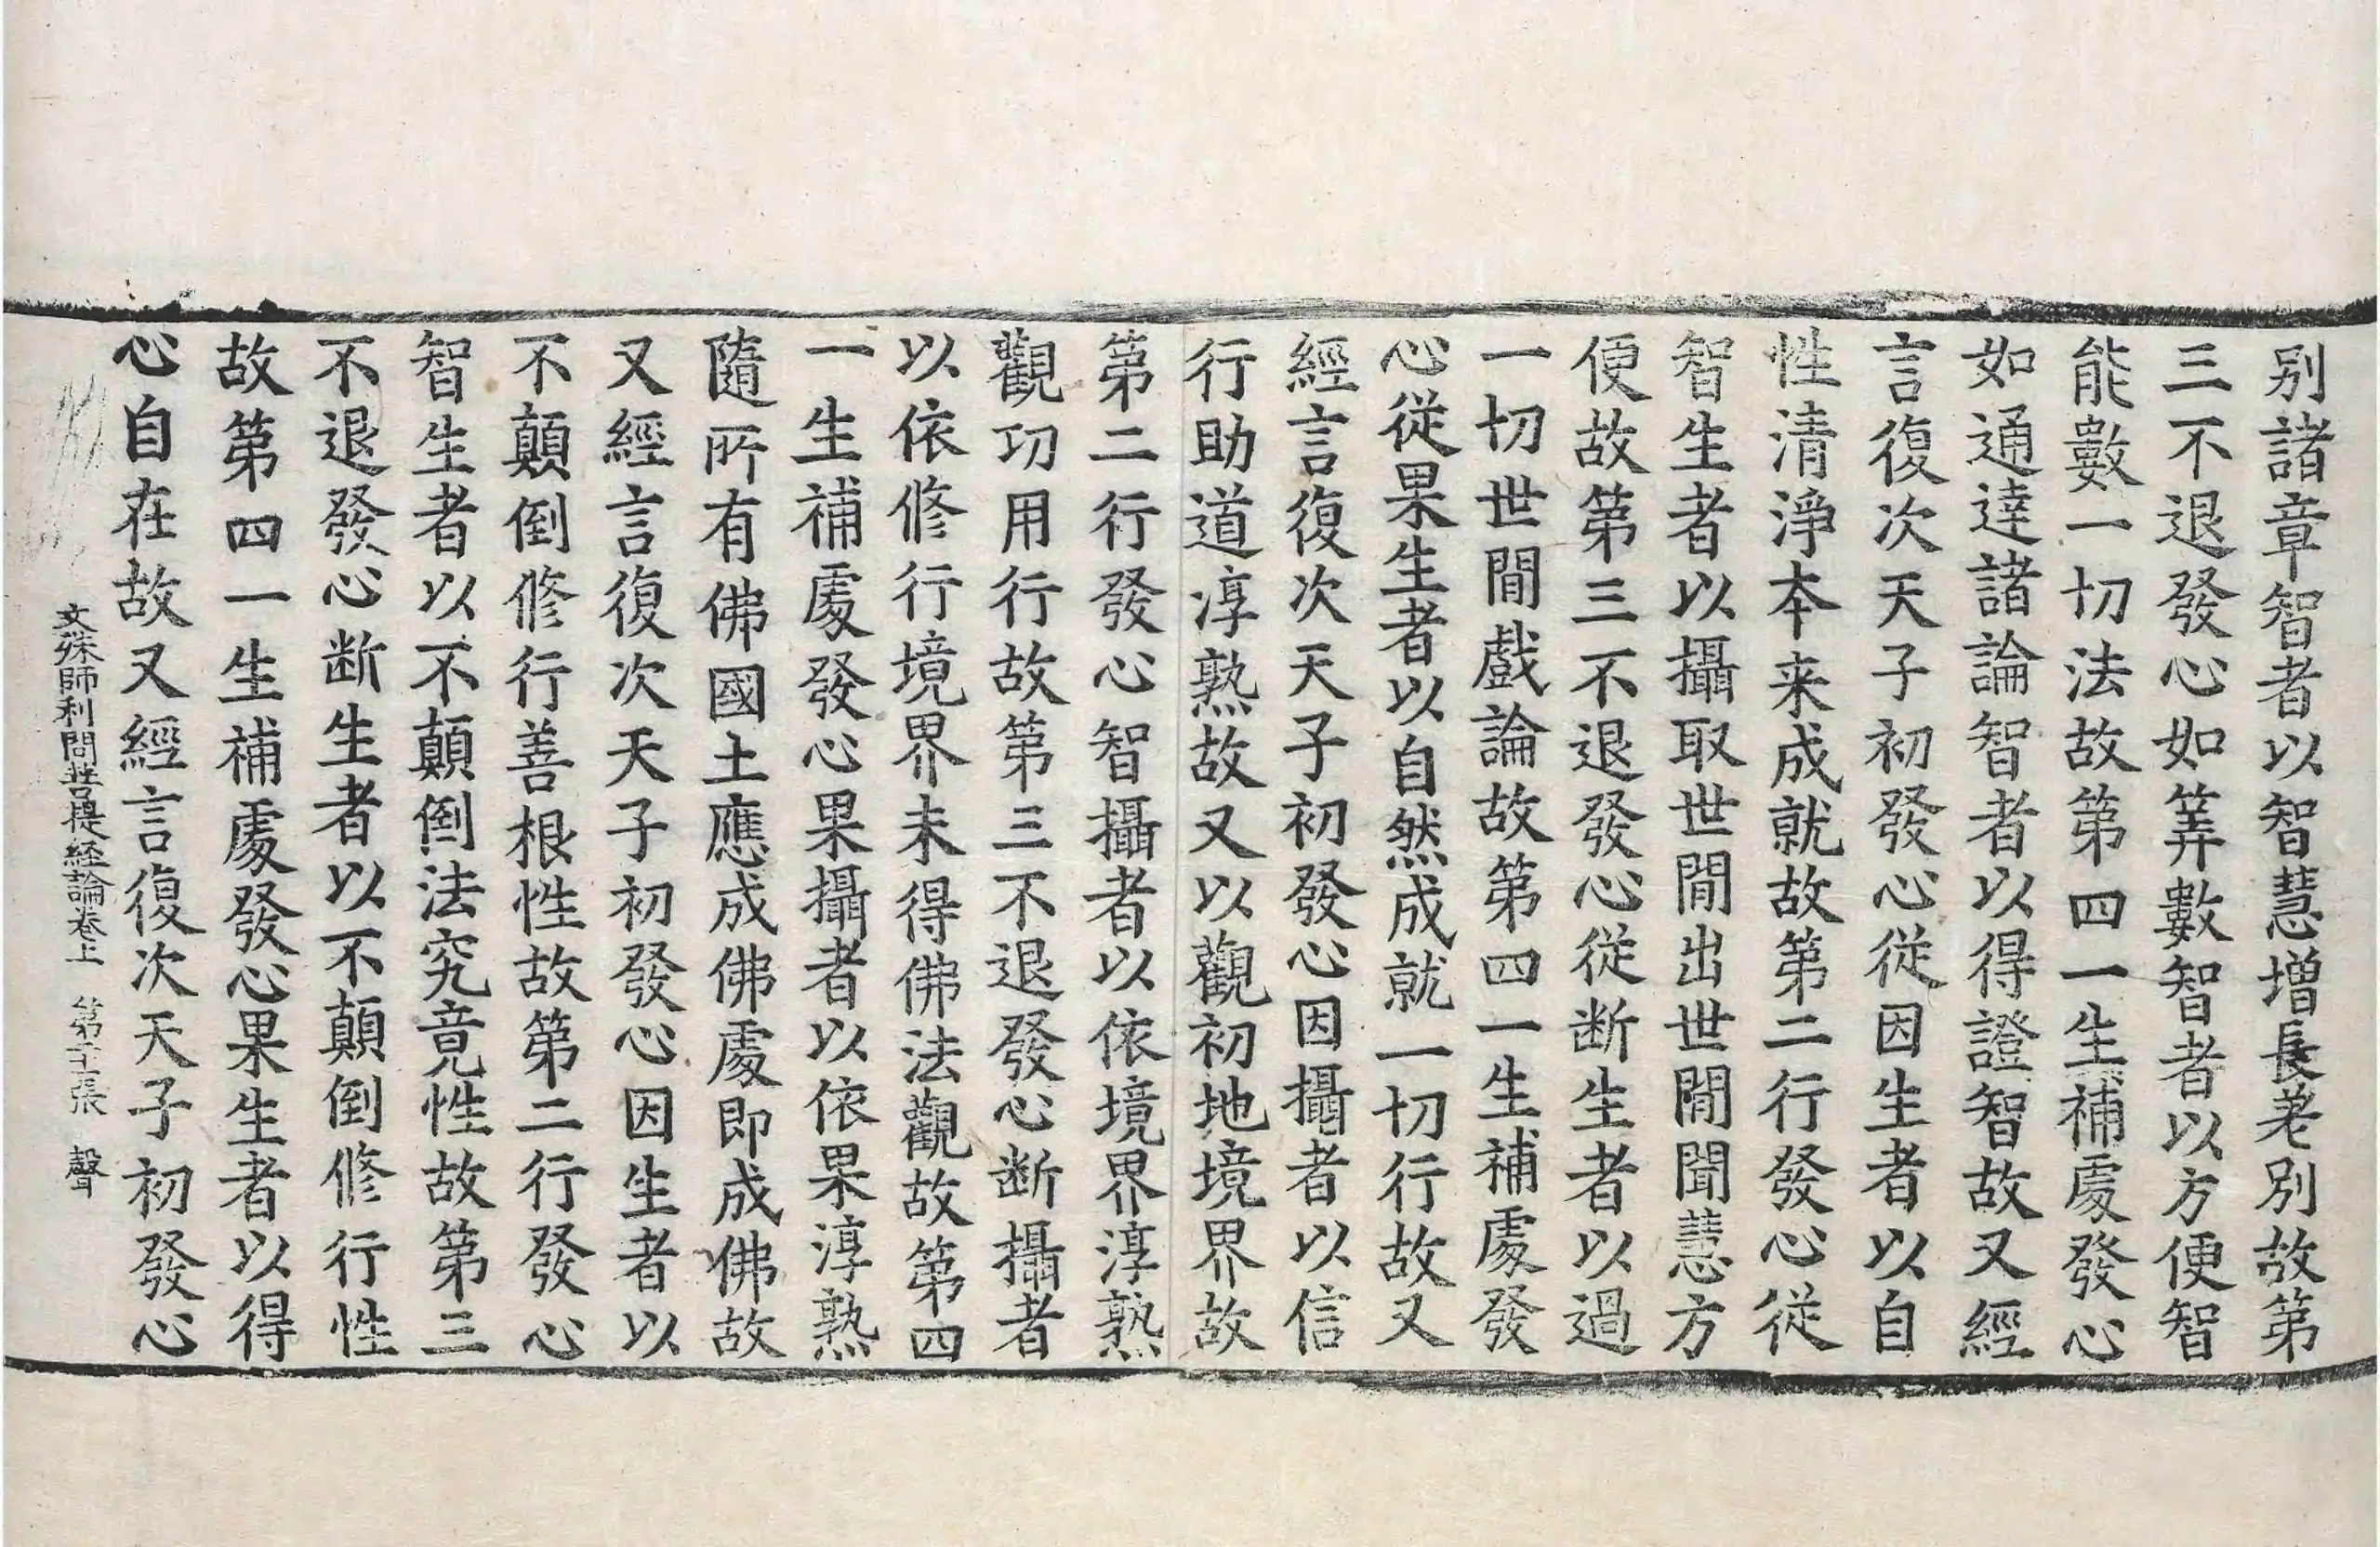 别諸章智者以智慧增長差別故第
三不退發心如筭數智者以方便智
能數一切法故第四一生補處發心
如通達諸論智者以得證智故又經
言復次天子初發心從因生者以自
性清淨本来成就故第二行發心從
智生者以攝取世間出世間聞慧方
便故第三不退發心從断生者以過
一切世間戲論故第四一生補處發
心從果生者以自然成就一切行故又
經言復次天子初發心因攝者以信
行助道淳熟故又以觀初地境界故
第二行發心智攝者以依境界淳熟
觀功用行故第三不退發心断攝者
以依修行境界未得佛法觀故第四
一生補處發心果攝者以依果淳熟
隨所有佛國土應成佛處即成佛故
又經言復次天子初發心因生者以
不顛倒修行善根性故第二行發心
智生者以不顛倒法究竟性故第三
不退發心断生者以不顛倒修行性
故第四一生補處發心果生者以得
心自在故又經言復次天子初發心
文殊師利問菩提經論卷上 第 張 聲